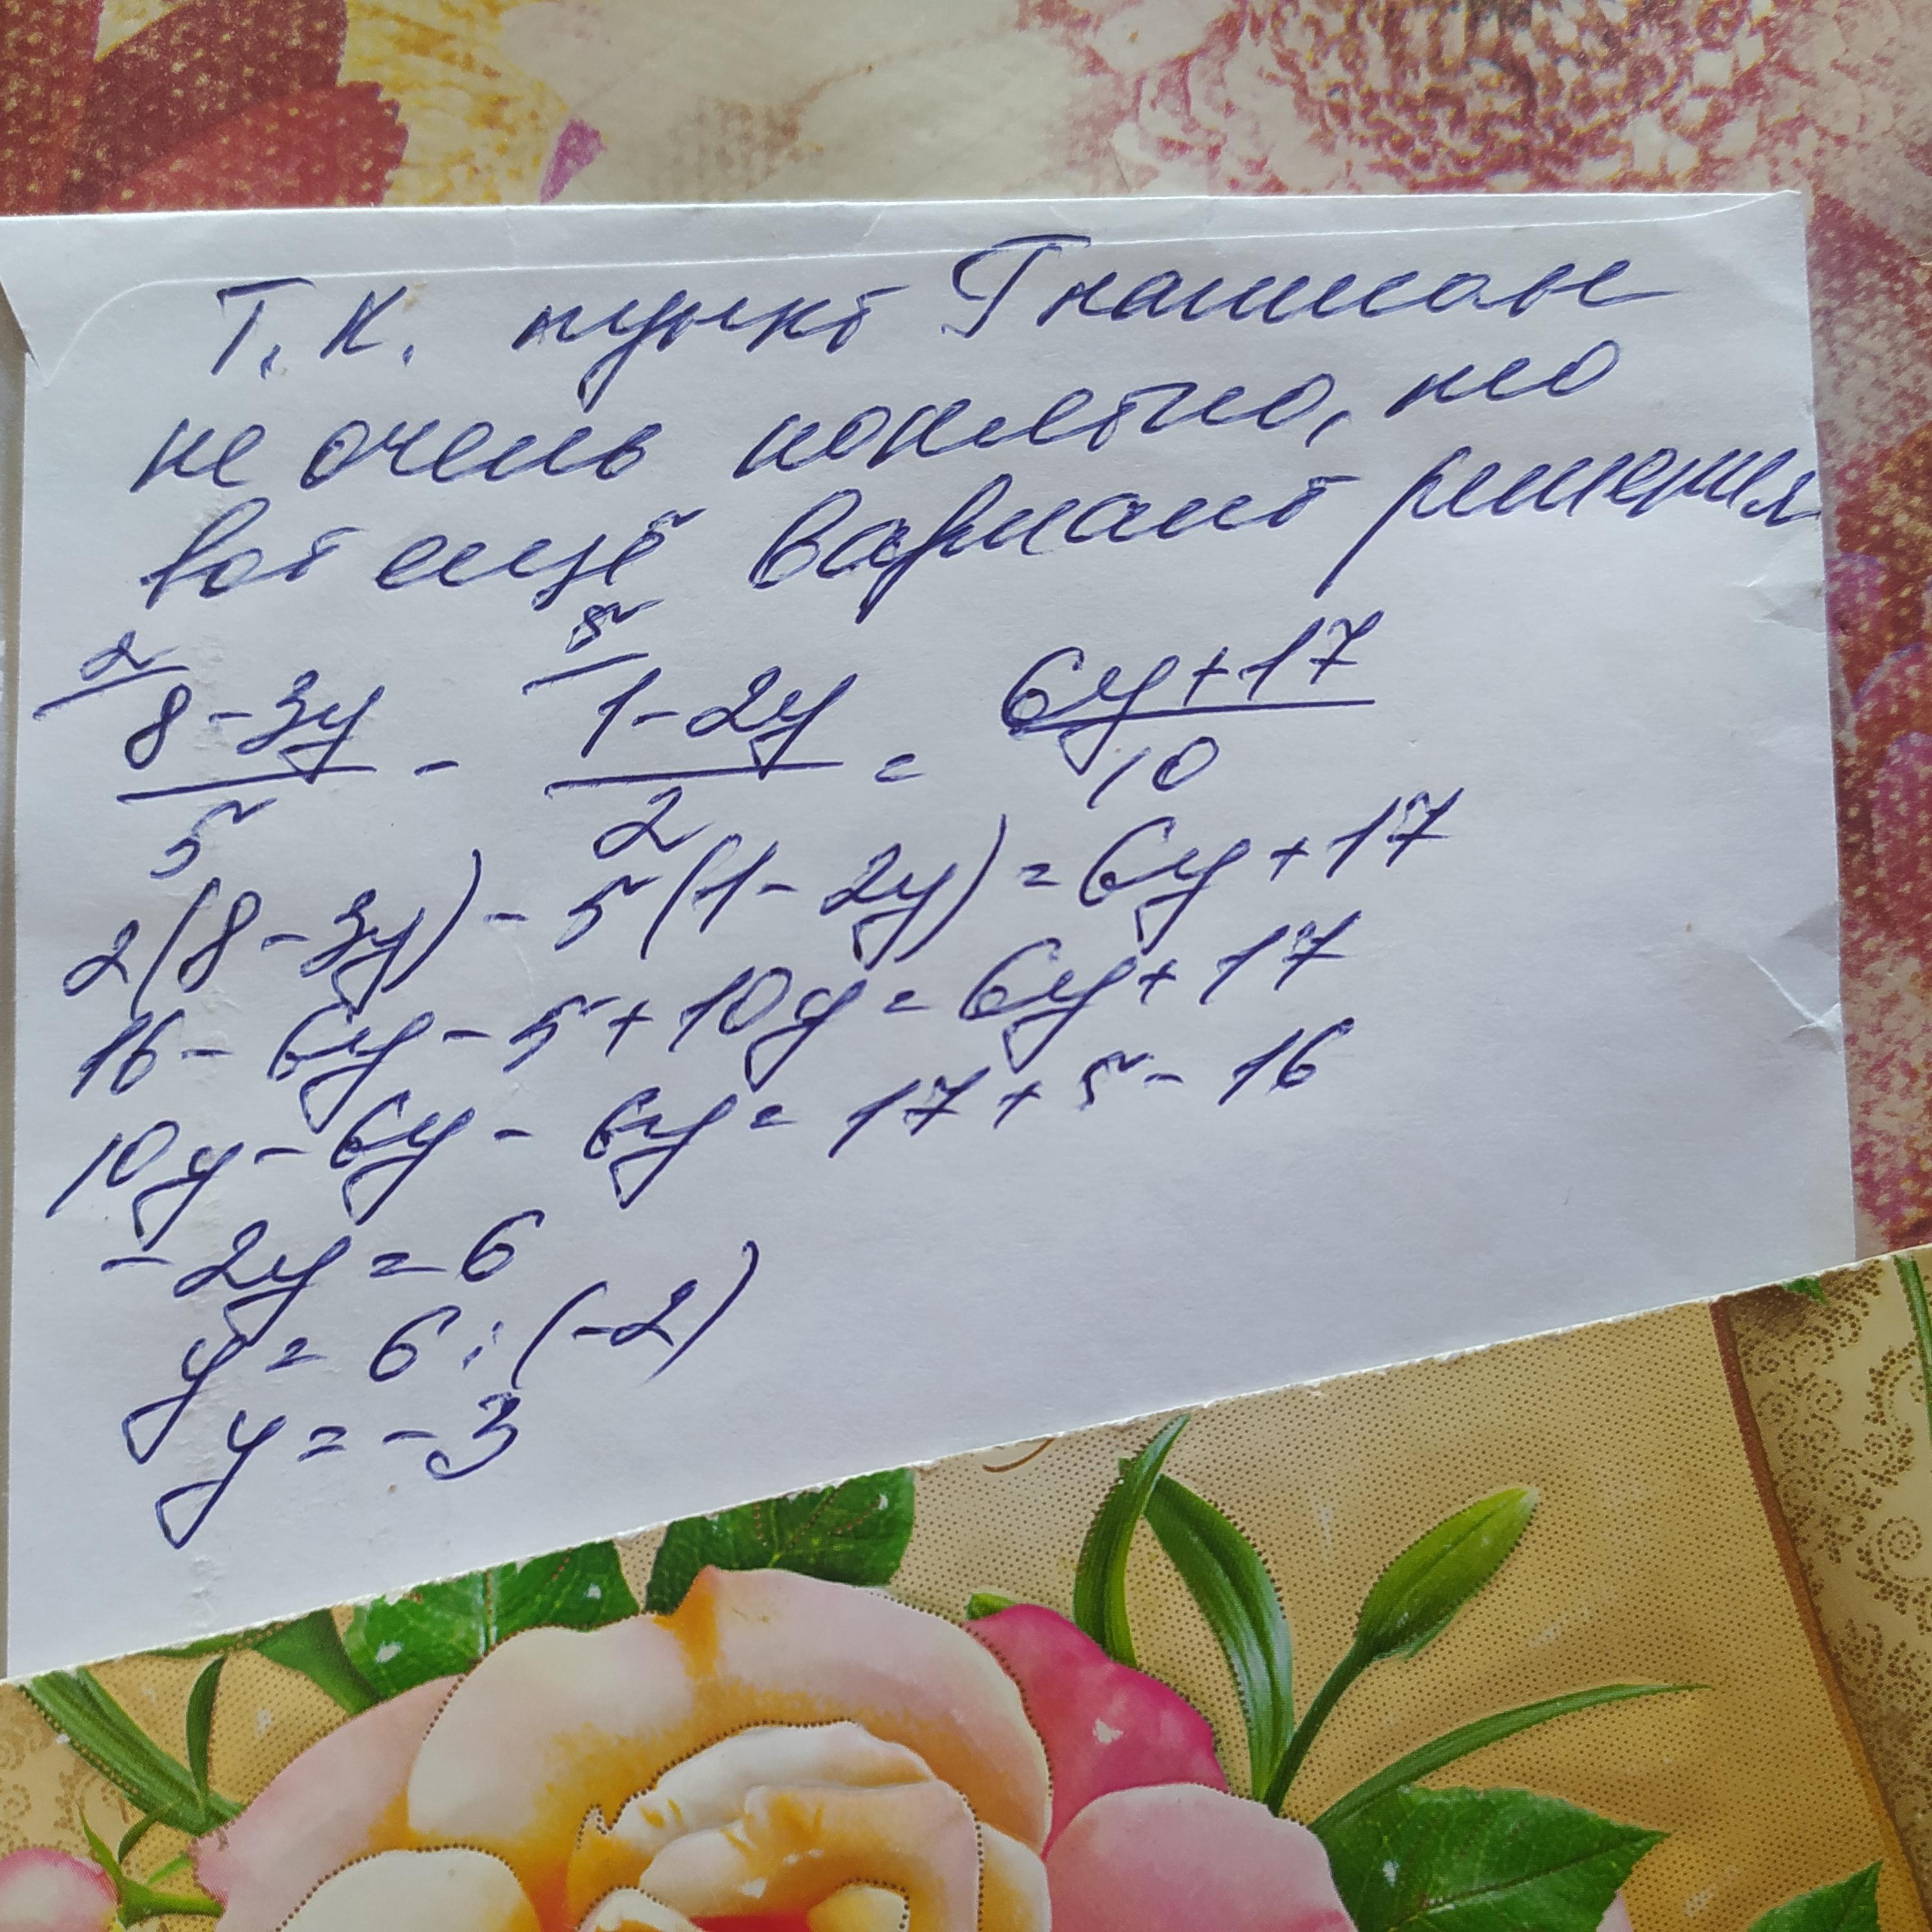 Т.К. пункт Г написан
не очень понятно, но
вот ещё вариант решения
2 5
8-3y 1-2y 6y+17
— - — = —
5 2 10
2(8-3y)-5(1-2y)=6y+17
16-6y-5+10y=6y+17
10y-6y-6y=17+5-16
-2y=6
y=6:(-2)
y=-3